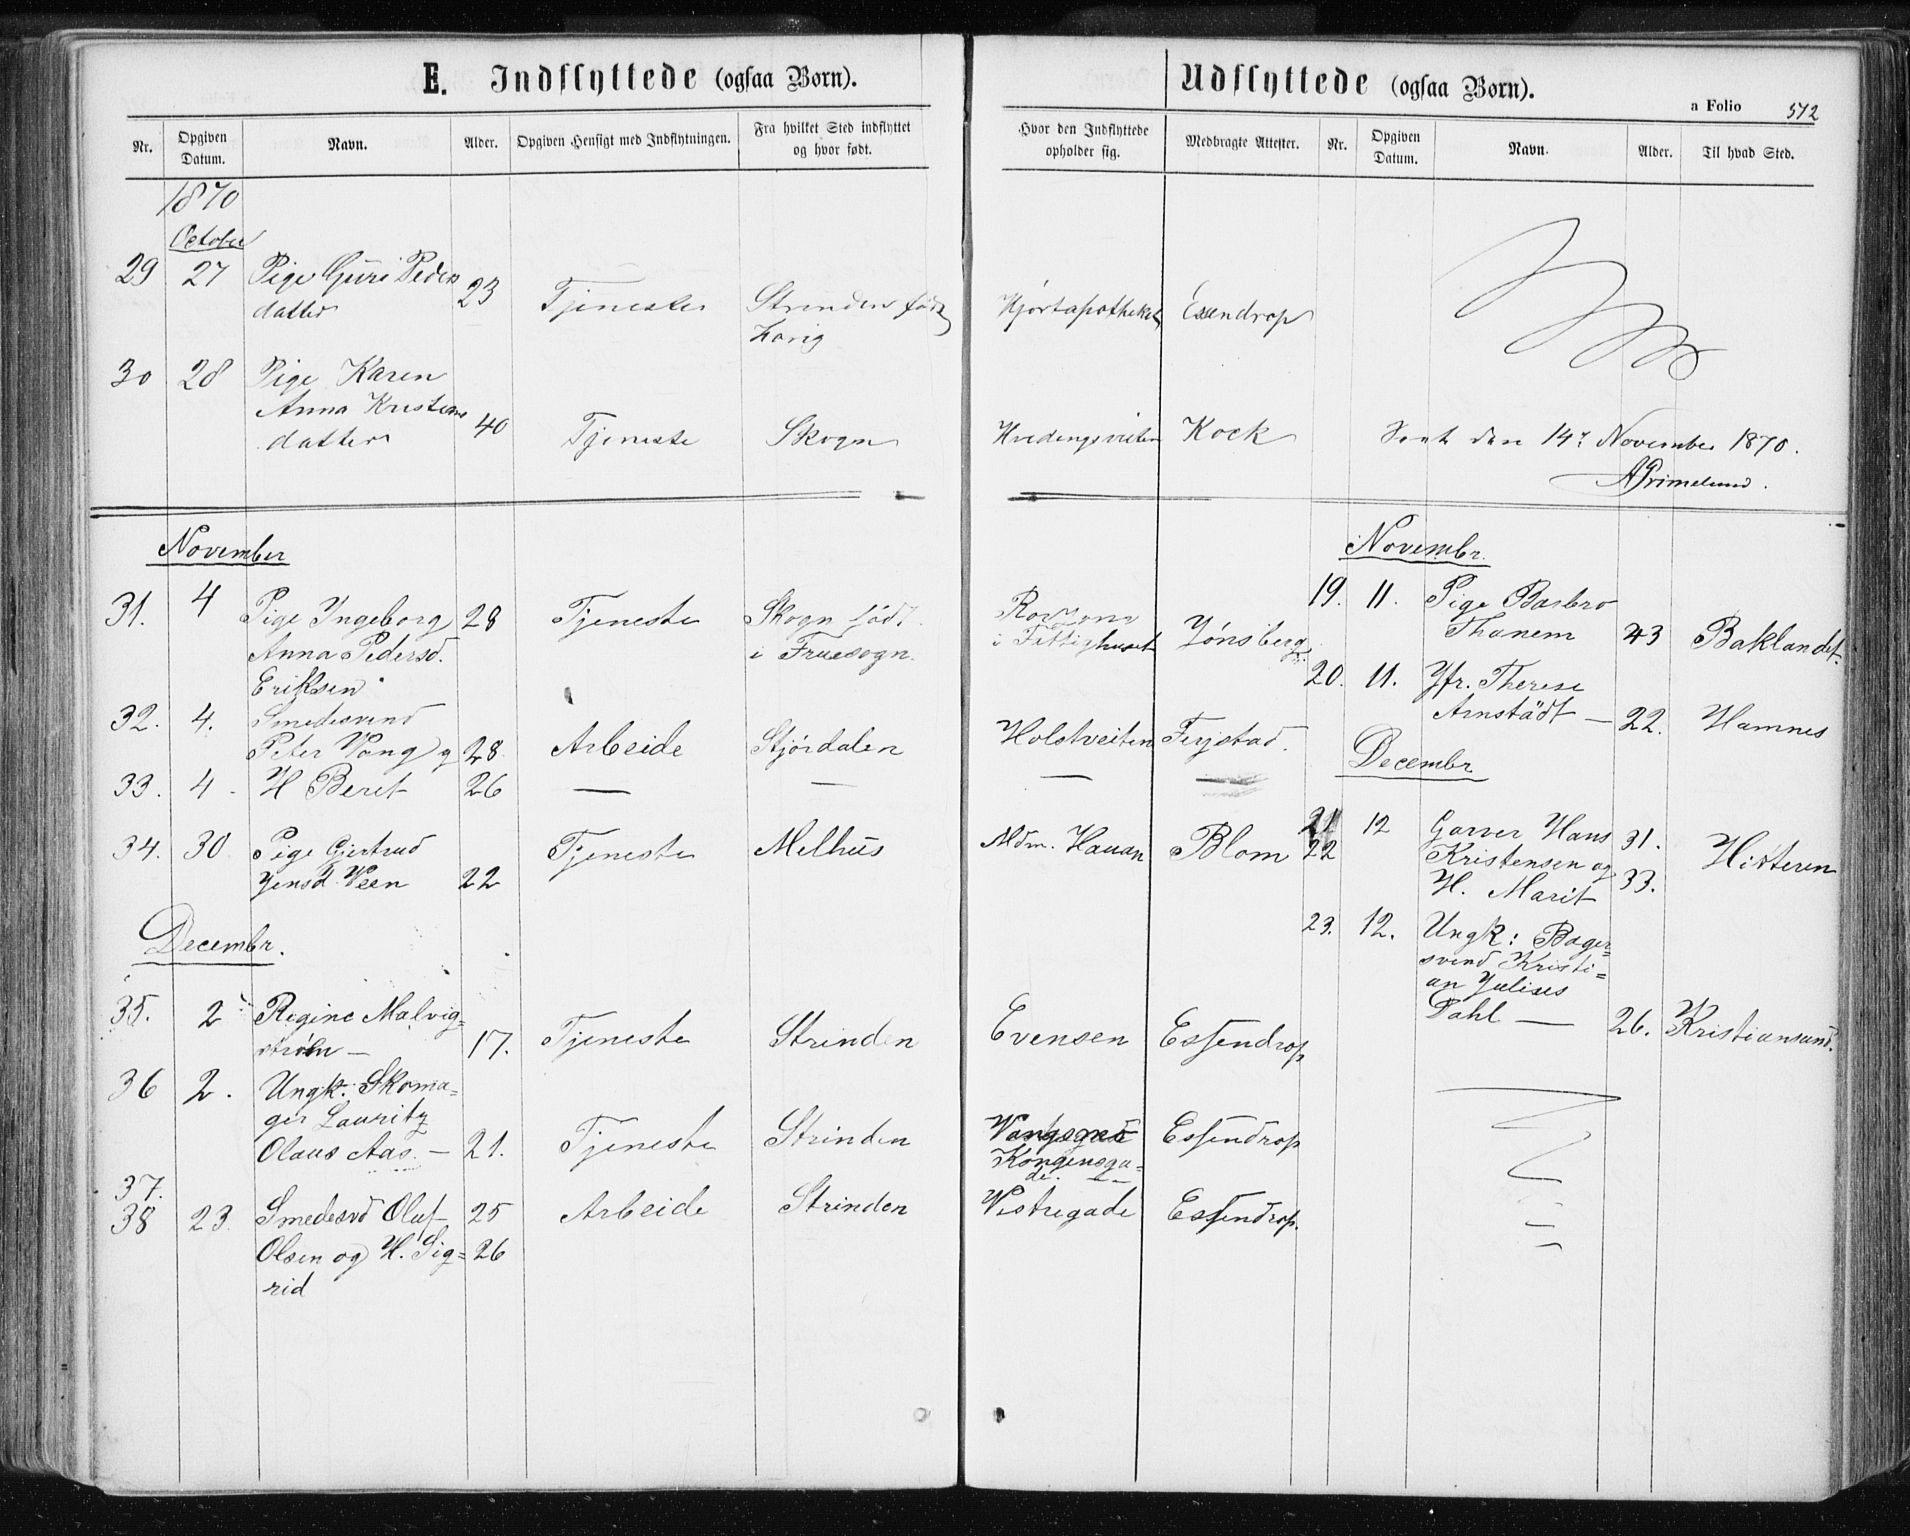 E. Indflyttede (ogsaa Børn).
Nr.
Opgiven Datum.
Navn.
Alder.
Opgiven Hensigt med Indflytningen.
Fra hvilket Sted indflyttet og hvor født.
Hvor den Indflyttede opholder sig.
Medbragte Attester.
1870
October
29 27 Pige Guri Peders
datter 23 Tjeneste Strinden født Hjorteapotheket Essendrop
30 28 Pige Karen
Anna Kristens
datter 40 Tjeneste Skogn Hvedingsveiten Kock
November
31. 4 Pige Ingeborg 28 Tjeneste Skogn født
Anna Pedersd. i Fruesogn. i Fattighuset Jønsberg
Eriksen
32. 4. Smedesvend
Peter Vang og 28 Arbeide Stjørdalen Holstveiten
33. 4 H Beret 26 — — —
34. 30 Pige Gjertrud Tjeneste Melhus Mdm. Hauan Blom
Jensd. Veen 22
Decembr.
35. 2 Regine Malvig=
strøm — 17. Tjeneste Strinden Evensen Essendrop
36 2. Ungk: Skoma=
ger Lauritz
Olaus Aas. — 21. Tjeneste Strinden Essendrop
Kongensga=
de.
37.
38 23. Smedesvd Oluf 25 Arbeide Strinden Vestregade Essendrop.
Olsen og H. Sig= 26
rid
Udflyttede (ogsaa Børn).
a Folio 572
Nr.
Opgiven Datum.
Navn.
Alder.
Til hvad Sted.
den 14 November 1870.
AGrimelund.
Novembr.
19. 11. Pige Barbro
Thanem 43 Baklandet.
20. 11. Jfr. Therese
Arnstädt — 22. Hamnes
Decembr
21 12 Garver Hans 31.
22 Kristensen og Hitteren
H. Marit 33.
23. 12. Ungk: Bager=
svend Kristi=
an Julius
Dahl — 26. Kristiansund.